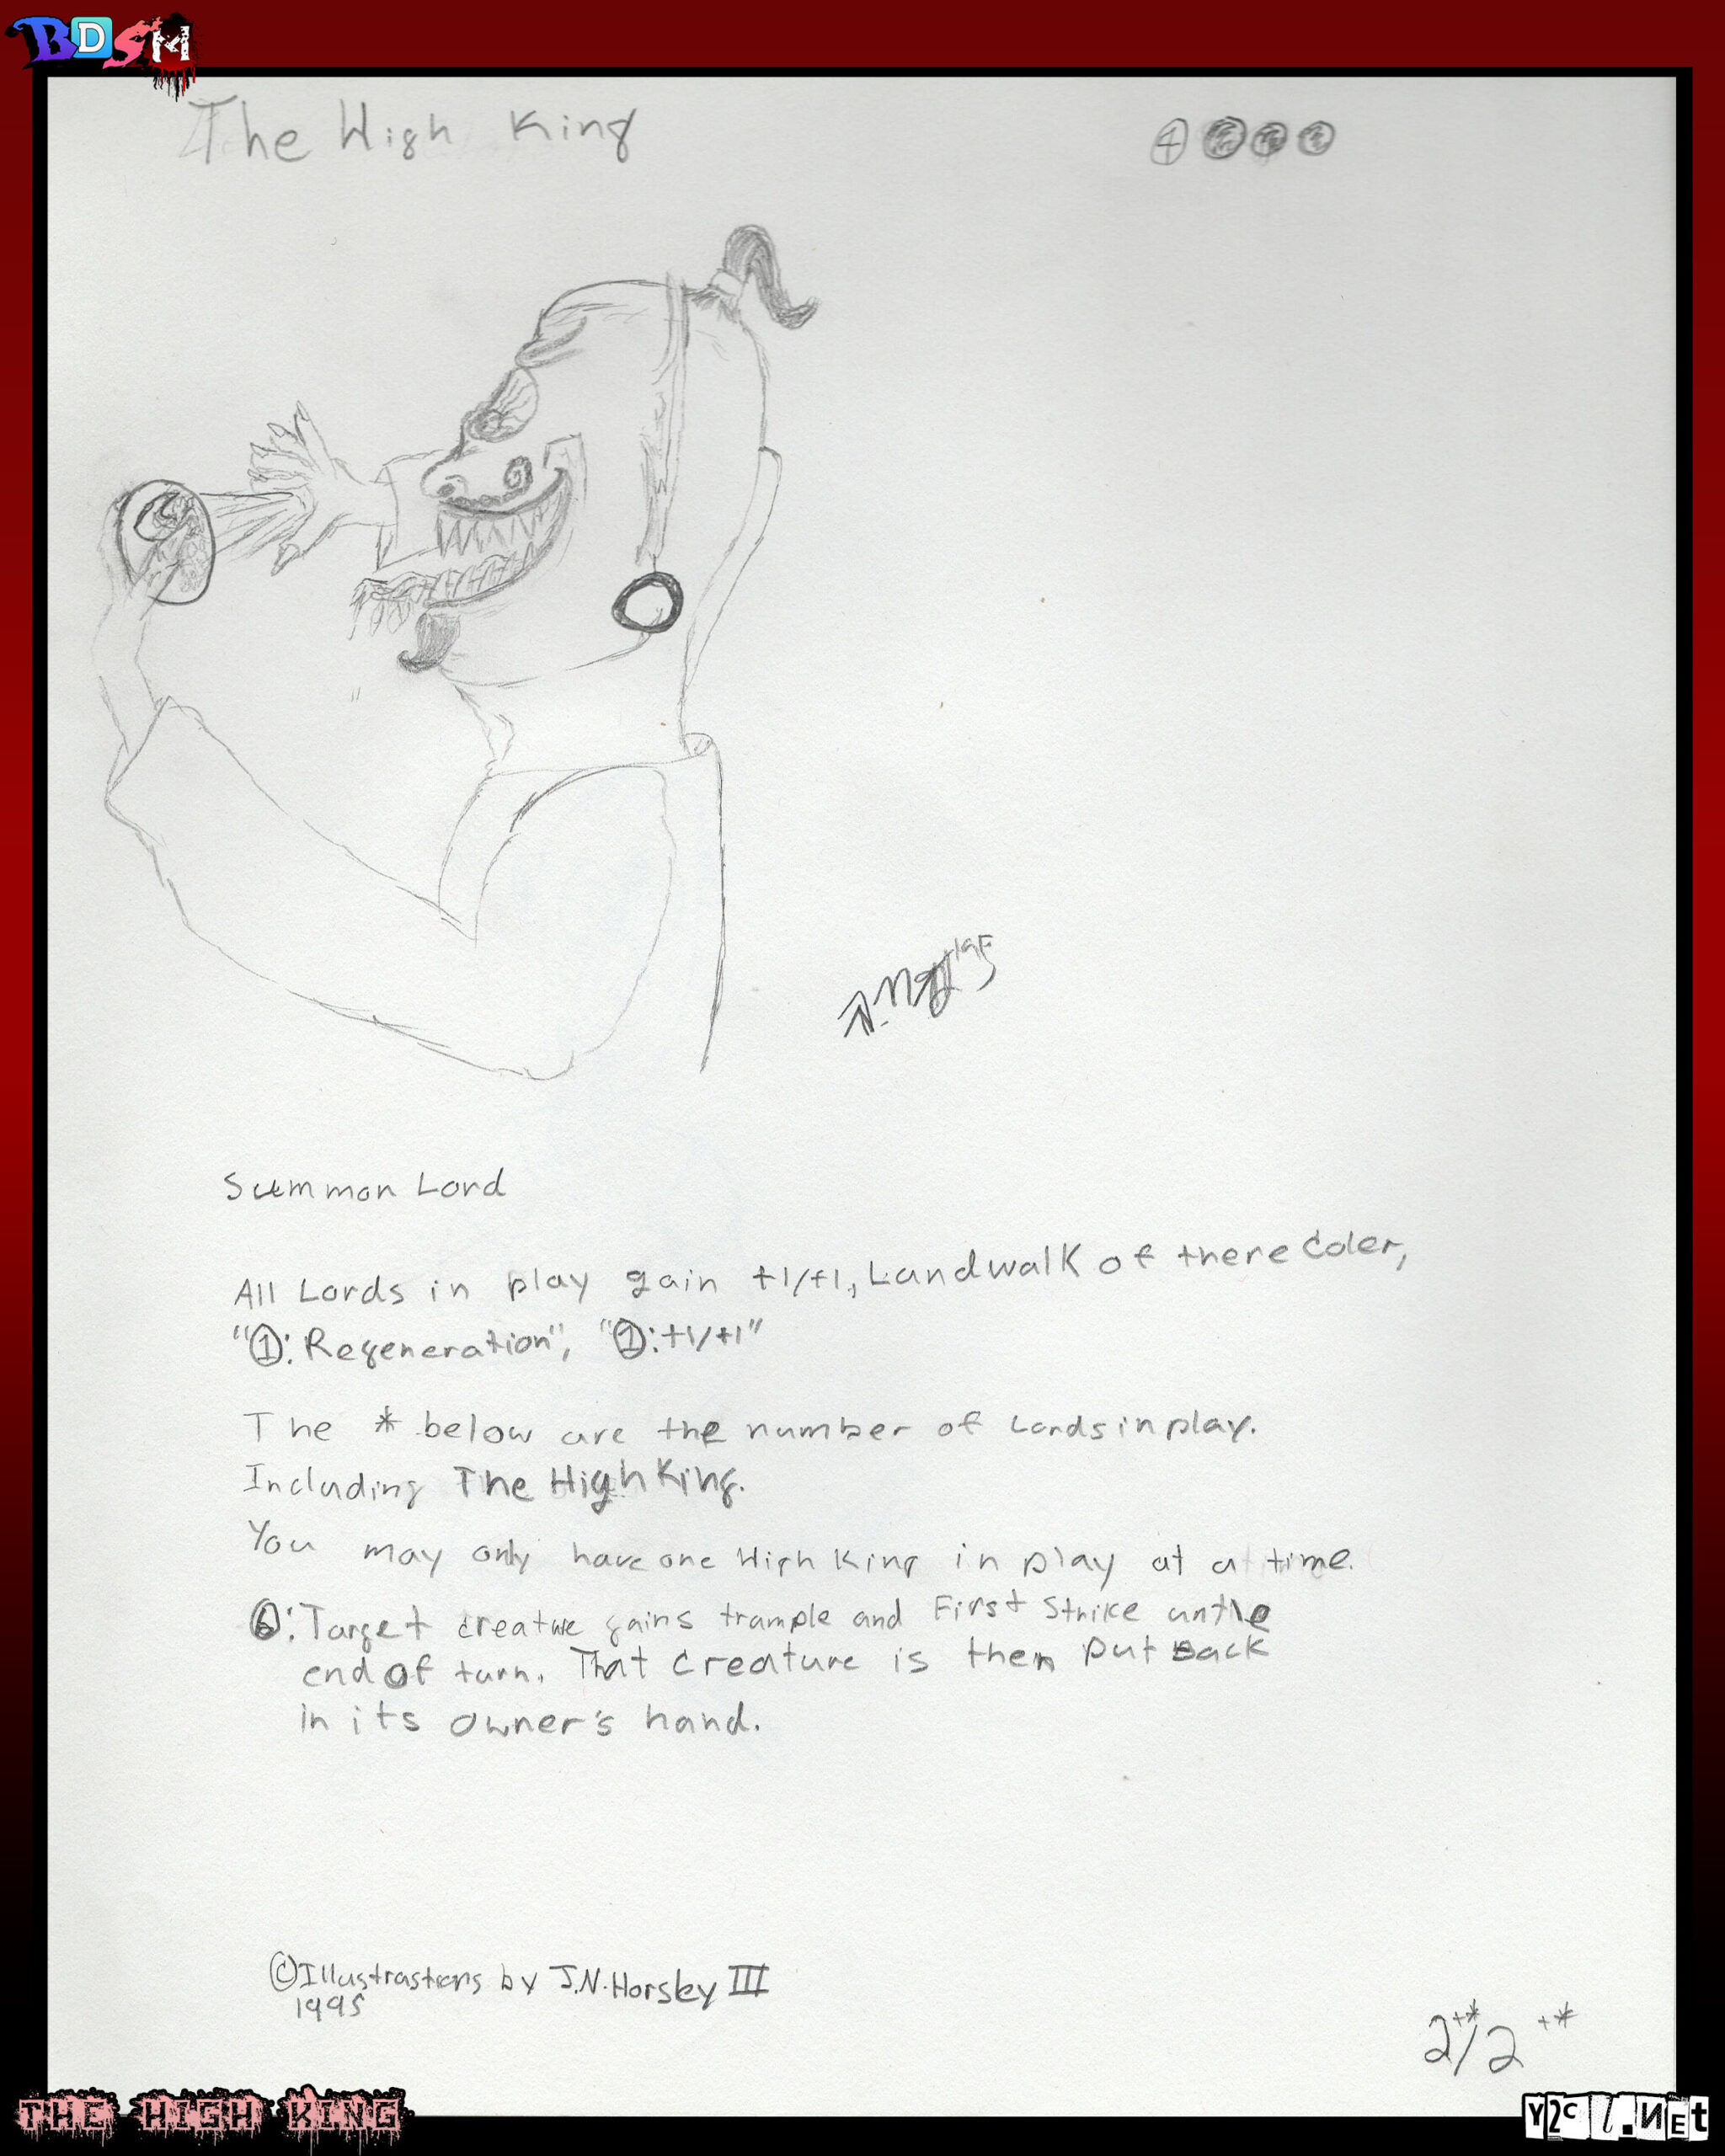 BDSM
The High King
4
Summon Lord
All Lords in play gain +1/+1, Landwalk of there Coler,
"①: Regeneration", "①: +1/+1"
The * below are the number of Lords in play.
Including The High King.
You may only have one High King in play at a time.
⑥: Target creature gains trample and First Strike untle
end of turn. That Creature is then put back
in its owner's hand.
©Illustrastions by J.N. Horsley III
1995
2+*/2+*
THE HIGH KING
Y2cl.Net